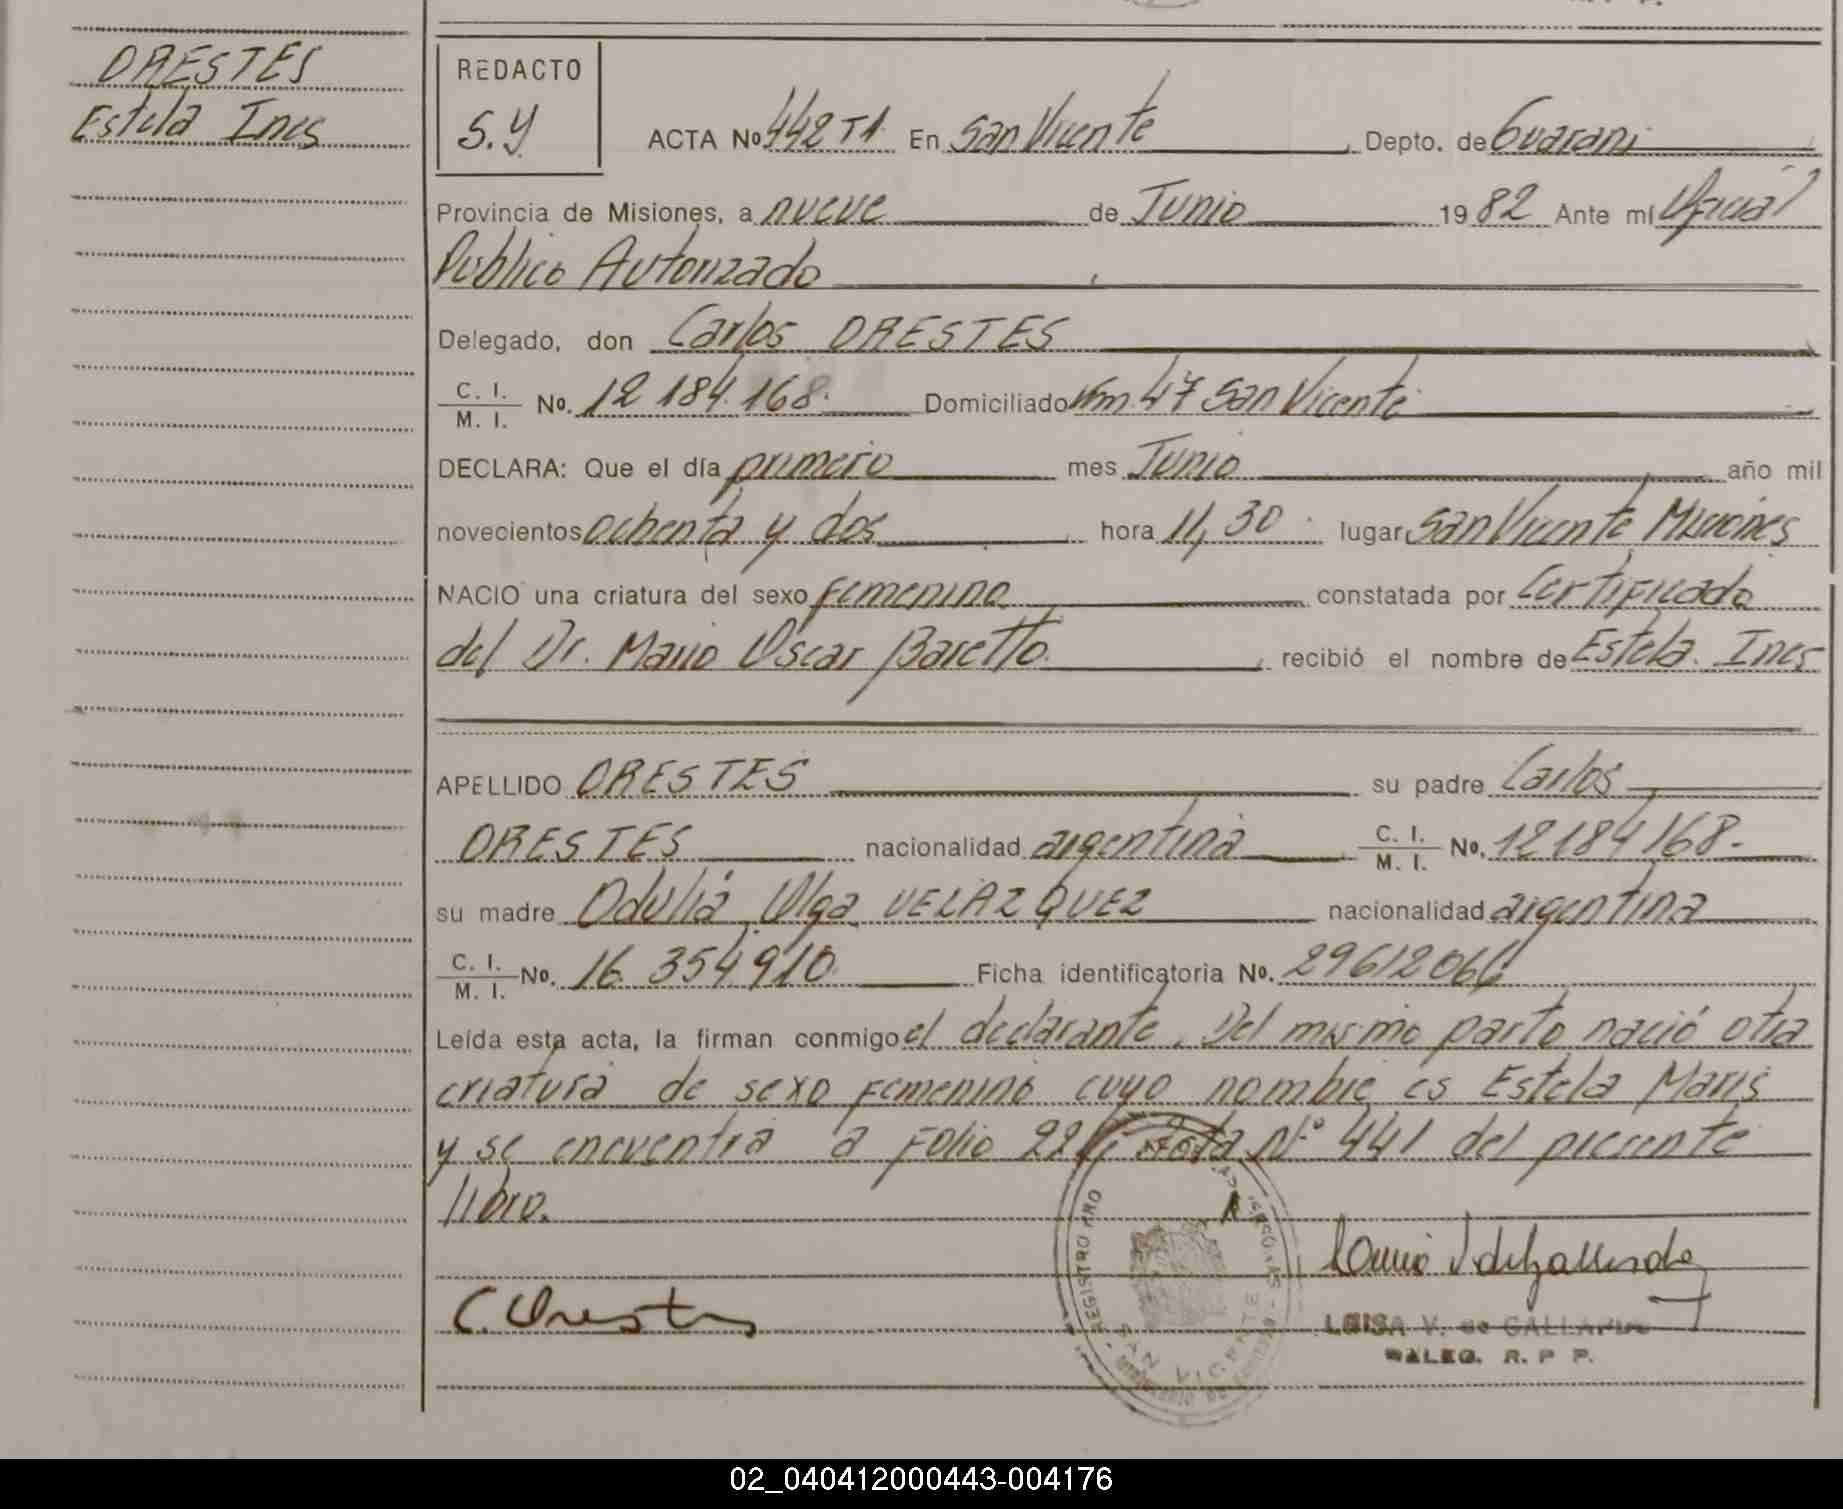 ORESTES
Estela Ines
REDACTO
S.Y
ACTA No 442 T1 En San Vicente, Depto. de Guarani
Provincia de Misiones, a nueve de Junio 1982 Ante mí Oficial
Publico Autorizado
Delegado, don Carlos ORESTES
C. I. / M. I. No. 12.184.168. Domiciliado Km. 47 San Vicente
DECLARA: Que el día primero mes Junio año mil
novecientos ochenta y dos, hora 11,30. lugar San Vicente Misiones
NACIO una criatura del sexo femenino constatada por Certificado
del Dr. Mario Oscar Baretto., recibió el nombre de Estela. Ines
APELLIDO ORESTES su padre Carlos
ORESTES nacionalidad argentina C. I. / M. I. No. 12184168.-
su madre Odulia Olga VELAZQUEZ nacionalidad argentina
C. I. / M. I. No. 16.354.910. Ficha identificatoria No. 29612066
Leída esta acta, la firman conmigo el declarante. Del mismo parto nació otra
criatura de sexo femenino cuyo nombre es Estela Maris
y se encuentra a Folio 22 Acta N° 441 del presente
libro.
C. Orestes
REGISTRO PRO
SAN VICENTE
LUISA V. de GALLARDO
DALEG. R. P. P.
02_040412000443-004176